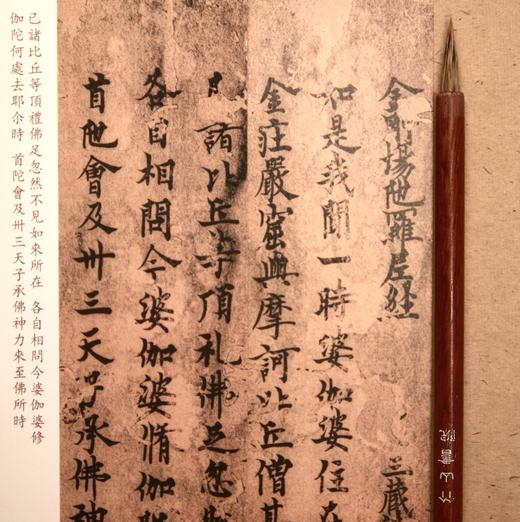 金剛場陀羅尼經 三藏
如是我聞一時婆伽婆住
金莊嚴窟與摩訶比丘僧
諸比丘等頂礼佛足忽
各自相問今婆伽婆脩伽
首陀會及卅三天子承佛神
已諸比丘等頂禮佛足忽然不見如來所在 各自相問今婆伽婆修
伽陀何處去耶尒時 首陀會及卅三天子承佛神力來至佛所時
竹山書院